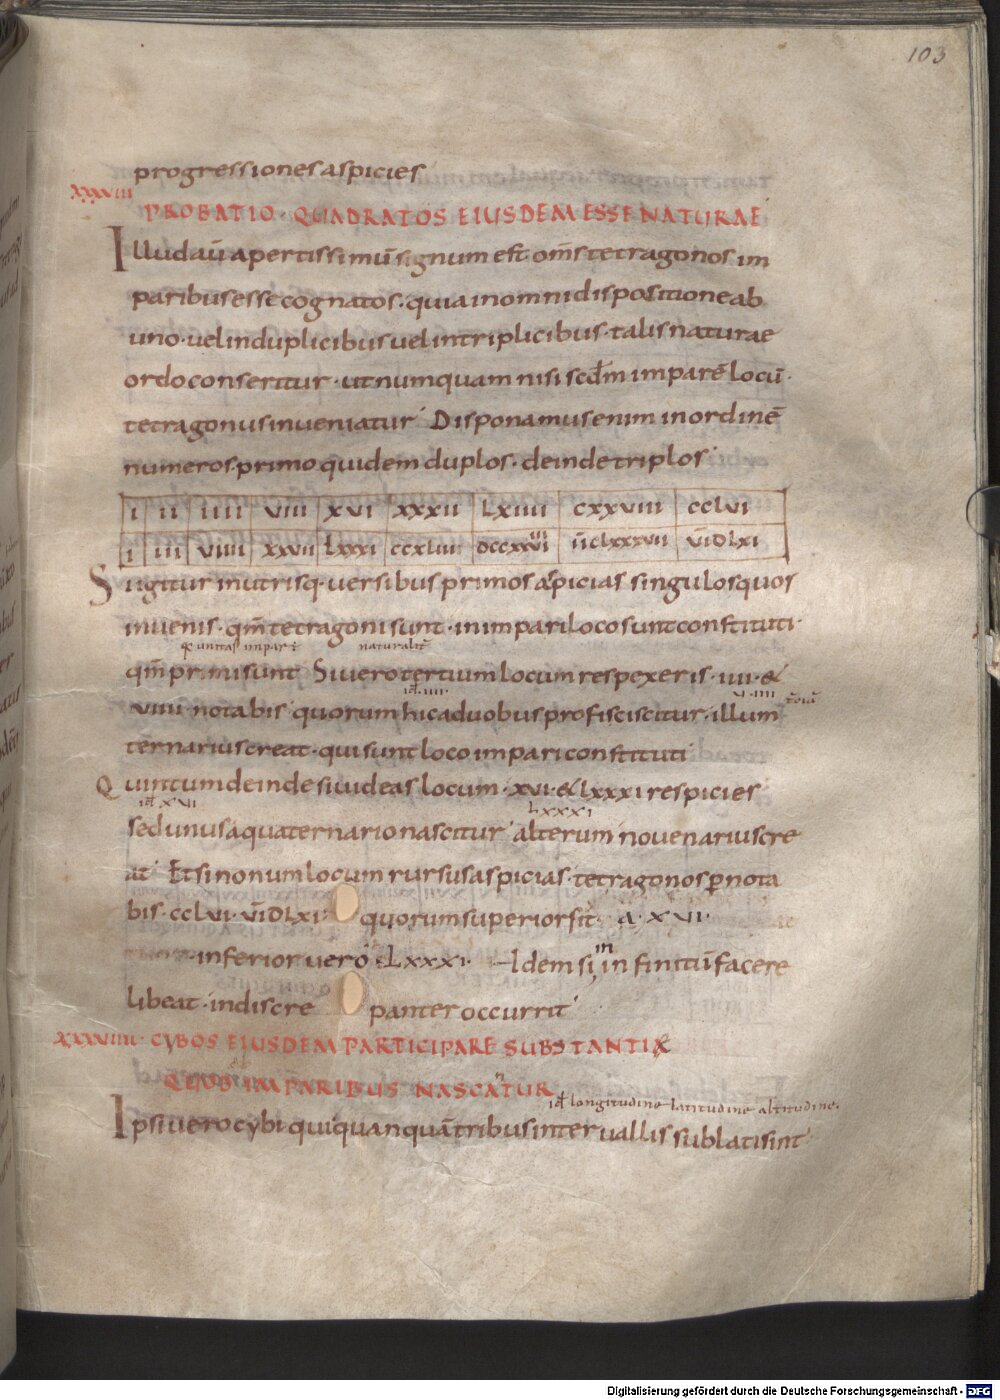 103
progressiones aspicies
XXXVIII
PROBATIO · QUADRATOS EIUSDEM ESSE NATURAE
Illud aū apertissimū signum est · om̄s tetragonos im
paribus esse cognatos · quia in omni dispositione ab
uno · vel in duplicibus vel in triplicibus · talis naturae
ordo conseritur · ut numquam nisi scdm imparē locū ·
tetragonus inveniatur Disponamus enim in ordinē
numeros · primo quidem duplos · deinde triplos
I II IIII VIII XVI XXXII LXIIII CXXVIII CCLVI
I III VIIII XXVII LXXXI CCXLIII DCCXXVIIII ĪĪCLXXXVII V̄IDLXI
Si igitur in utrisq · versibus primos aspicias singulos quos
invenis · qm̄ tetragoni sunt · in impari loco sunt constituti ·
naturalit̄
qm̄ primi sunt Si vero tertium locum respexeris · IIII · &
id IIII VIIII
VIIII · notabis quorum hic a duobus profisciscitur · illum
ternarius creat · qui sunt loco impari constituti
Quintum deinde si videas locum · XVI · & LXXXI respicies
id XVI LXXXI
sed unus a quaternario nascitur alterum novenarius cre
at Et si nonum locum rursus aspicias · tetragonos p̄nota
bis · CCLVI · V̄IDLXI · quorum superior fit · A · XVI ·
inferior vero LXXXI · Idem si in
m
finitū facere
libeat · indiscre panter occurrit
XXXVIIII · CYBOS EIUSDEM PARTICIPARE SUBSTANTIÆ
QUOD IMPARIBUS NASCANTUR
id longitudine latitudine altitudine ·
Ipsi vero cybi qui quanquā tribus intervallis sublati sint
Digitalisierung gefördert durch die Deutsche Forschungsgemeinschaft - DFG